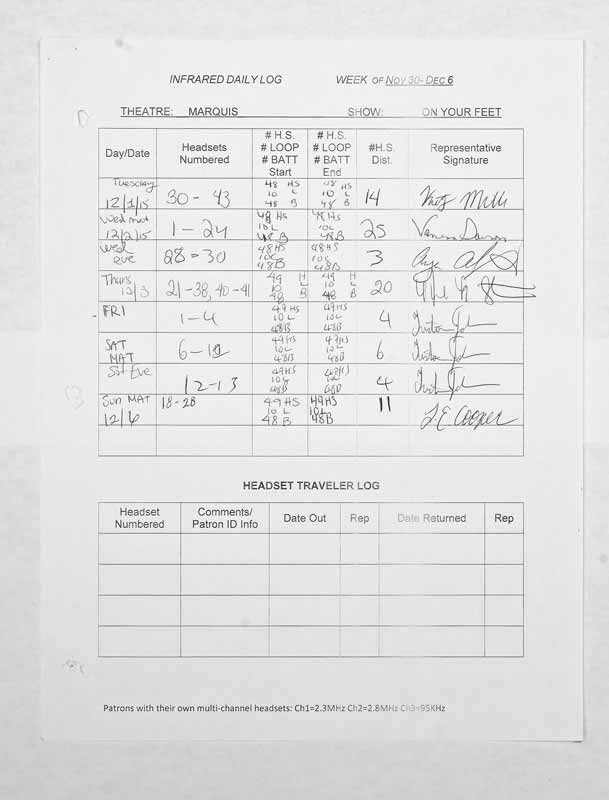 INFRARED DAILY LOG WEEK OF NOV 30- DEC 6
THEATRE: MARQUIS SHOW: ON YOUR FEET
Day/Date Headsets Numbered # H.S. # LOOP # BATT Start # H.S. # LOOP # BATT End #H.S. Dist. Representative Signature
Tuesday 12/1/15 30 - 43 48 HS 10 L 48 B 48 HS 10 L 48 B 14
Wed mat 12/2/15 1 - 24 48 HS 10 L 48 B 48 HS 10L 48B 25
Wed eve 28 - 30 48HS 10L 48B 48HS 10L 48B 3
Thurs 12/3 21 - 38, 40 - 41 49 H 10 L 48 B 49 H 10 L 48 B 20
FRI 1 - 4 49HS 10L 48B 49HS 10L 48B 4
SAT MAT 6 - 49HS 10L 48B 49HS 10L 48B 6
Sat Eve 12 - 13 49HS 48B 49HS 10L 48B 4
Sun MAT 12/6 18 - 28 49 HS 10 L 48 B 49 HS 10L 48B 11 J.E. Cooper
HEADSET TRAVELER LOG
Headset Numbered Comments/ Patron ID Info Date Out Rep Date Returned Rep
Patrons with their own multi-channel headsets: Ch1=2.3MHz Ch2=2.8MHz Ch3=95KHz